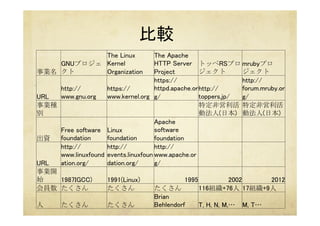 比較
事業名 GNUプロジェクト The Linux Kernel Organization The Apache HTTP Server Project トッペRSプロジェクト mrubyプロジェクト
URL http://www.gnu.org https://www.kernel.org https://httpd.apache.org/ http://toppers.jp/ http://forum.mruby.org/
事業種別 特定非営利活動法人(日本) 特定非営利活動法人(日本)
出資 Free software foundation Linux foundation Apache software foundation
URL http://www.linuxfoundation.org/ http://events.linuxfoundation.org/ http://www.apache.org/
事業開始 1987(GCC) 1991(Linux) 1995 2002 2012
会員数 たくさん たくさん たくさん 116組織+76人 17組織+9人
人 たくさん たくさん Brian Behlendorf T, H, N, M,… M, T…